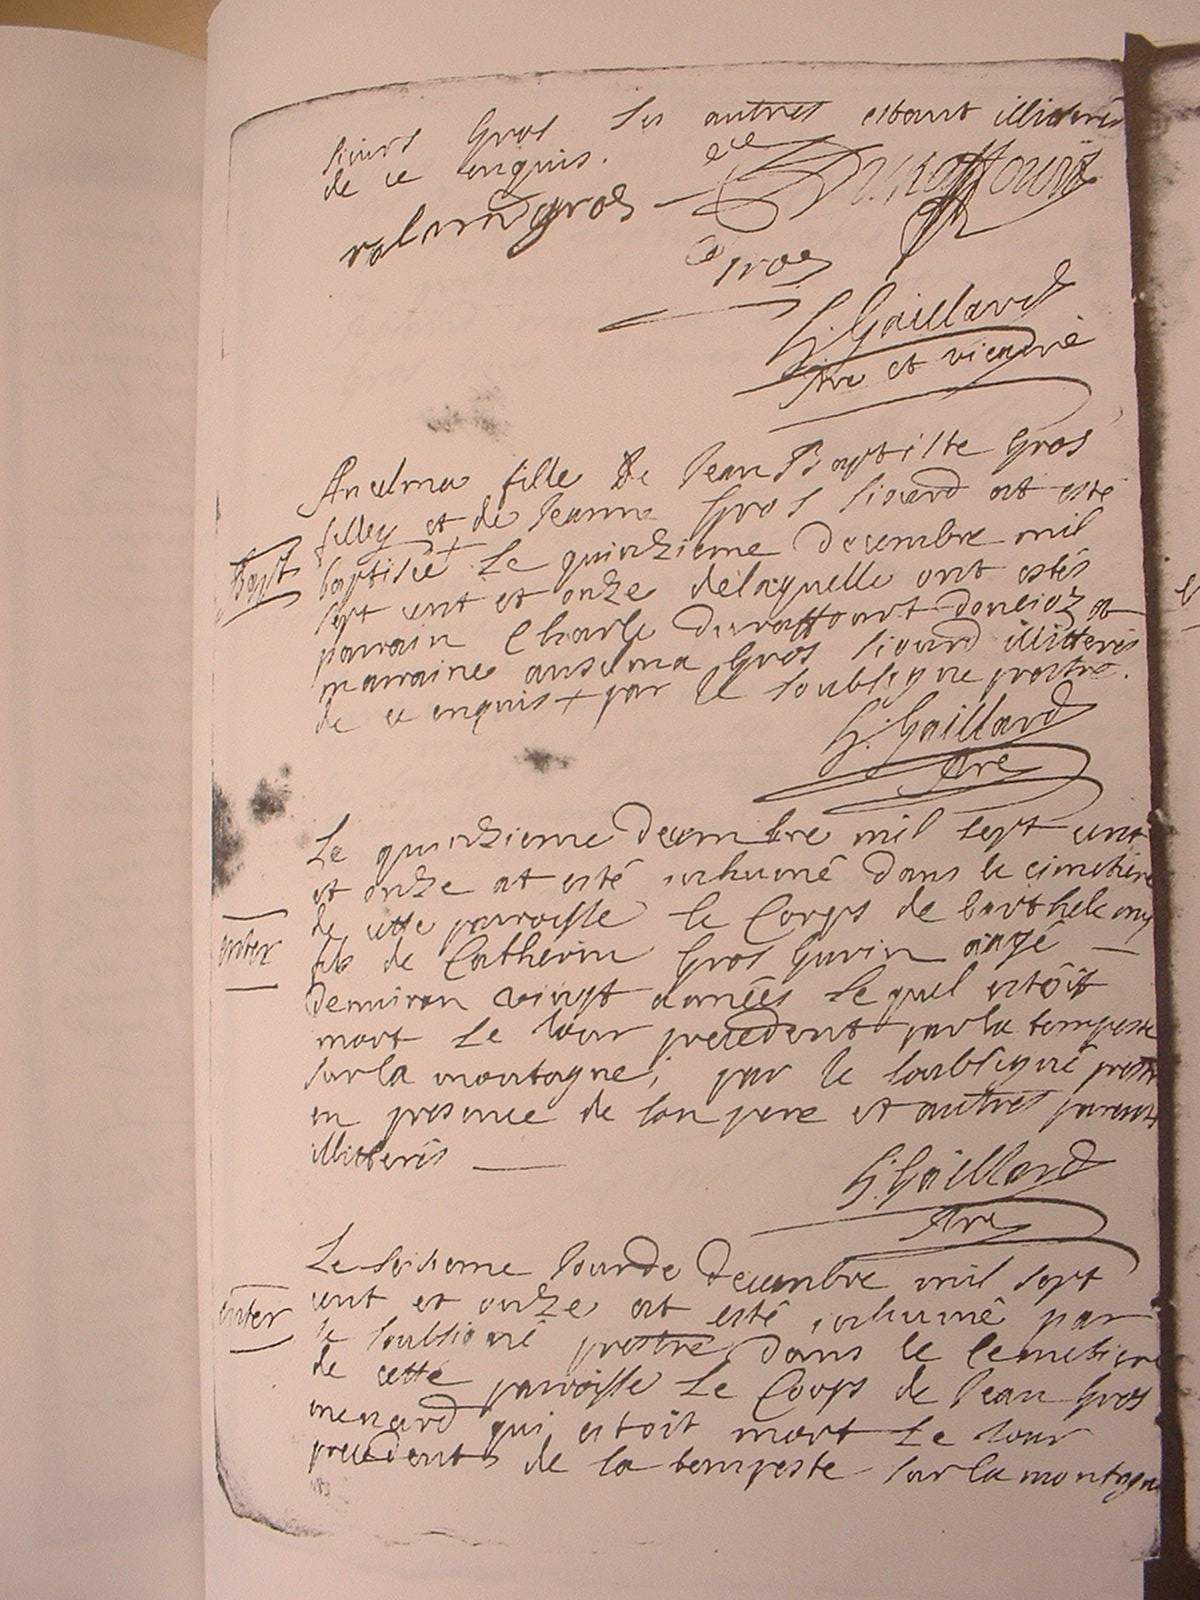 sieurs Gros les autres estant illiterés
de ce enquis.
gros
Gros
G. Gaillard
Pre et vicaire
Anselma fille de Jean Baptiste Gros
filley et de Jeanne Gros sicard at esté
Bapt
baptisée Le quinzieme decembre mil
sept cent et onze delaquelle ont estés
parrain Charle duraffourt et
marraine anselma Gros sicard illitterés
de ce enquis par le soubsigne prestre.
G. Gaillard
Pre
Le quinzieme decembre mil sept cent
et onze at esté inhumé dans le cimetiere
de cette parroisse le Corps de barthelemy
enter
fils de Catherin Gros Gurin aagé
denviron vingt années lequel estoit
mort le Jour precedent par la tempeste
sur la montagne, par le soubsigné prestre
en presence de son pere et autres parents
illitterés
G. Gaillard
Pre
Le seizieme Jour de decembre mil sept
enter
cent et onze at esté inhumé par
le soubsigné prestre dans le Cemetiere
de cette parroisse Le Corps de Jean Gros
menard qui estoit mort Le Jour
precedent de la tempeste sur la montagne